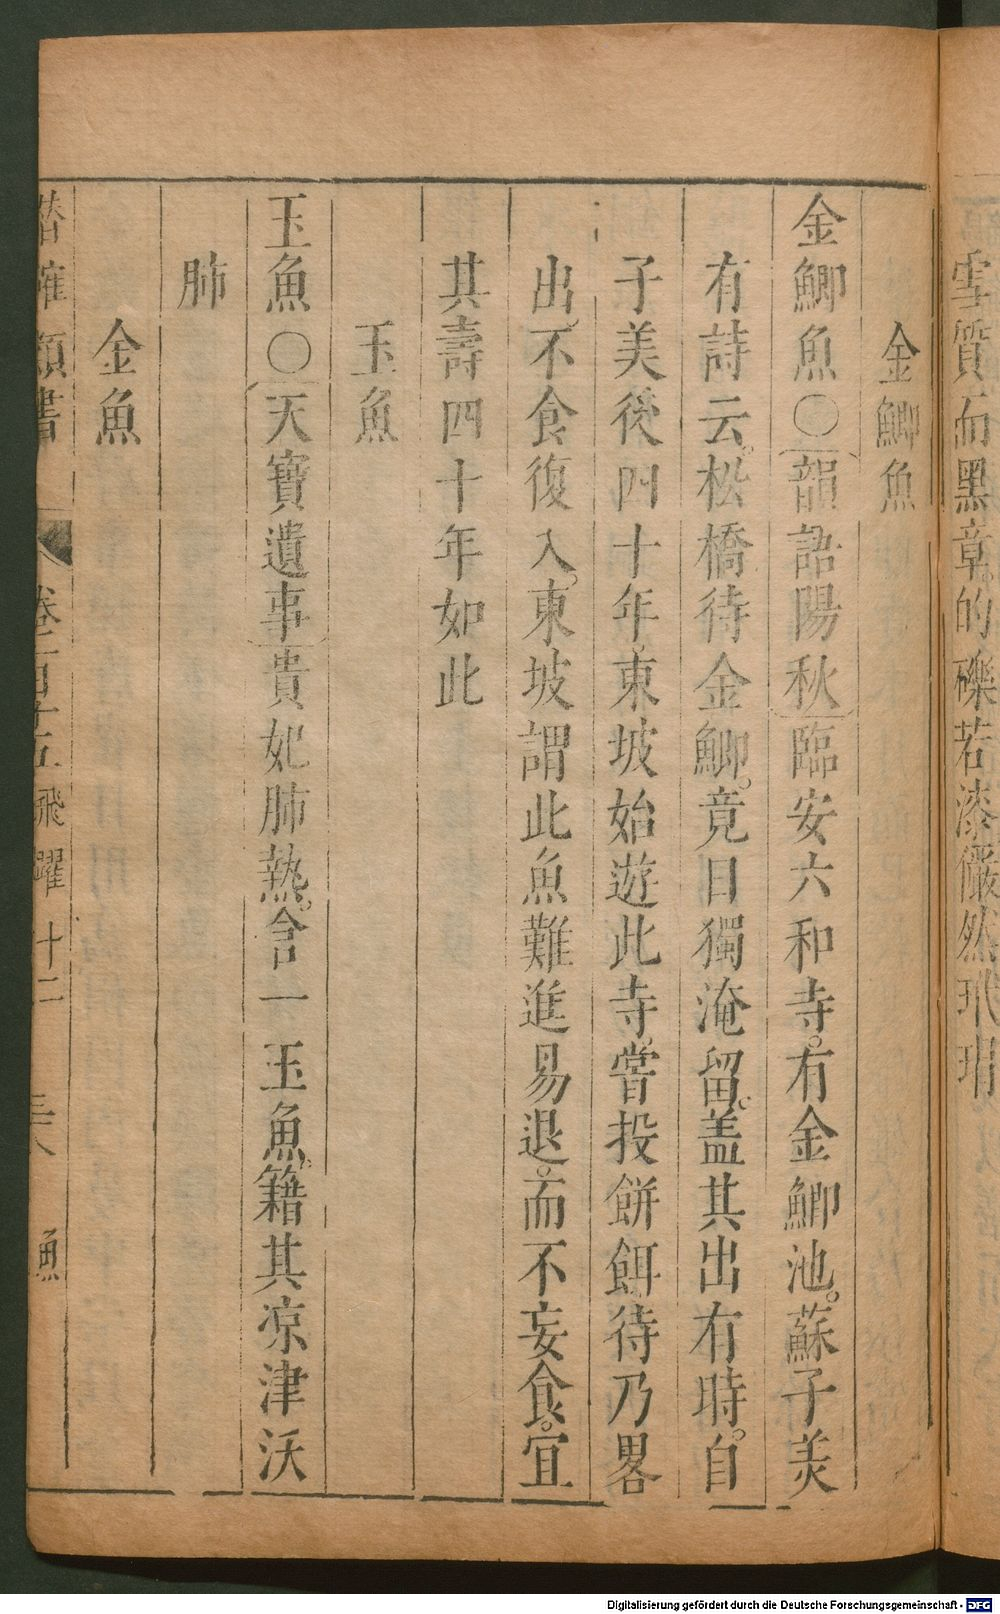 雪質而黑章的礫若漆儼然玳瑁
金鯽魚
金鯽魚〇韻語陽秋臨安六和寺。有金鯽池。蘇子美
有詩云。松橋待金鯽。竟日獨淹留。蓋其出有時。自
子美後四十年。東坡始遊此寺。嘗投餅餌待乃畧
出。不食復入。東坡謂此魚難進易退。而不妄食。宜
其壽四十年如此
玉魚
玉魚〇天寶遺事貴妃肺熱。含一玉魚。籍其凉津沃
肺
金魚
潛確類書 卷一百十五 飛躍十二 三八 魚
Digitalisierung gefördert durch die Deutsche Forschungsgemeinschaft - DFG